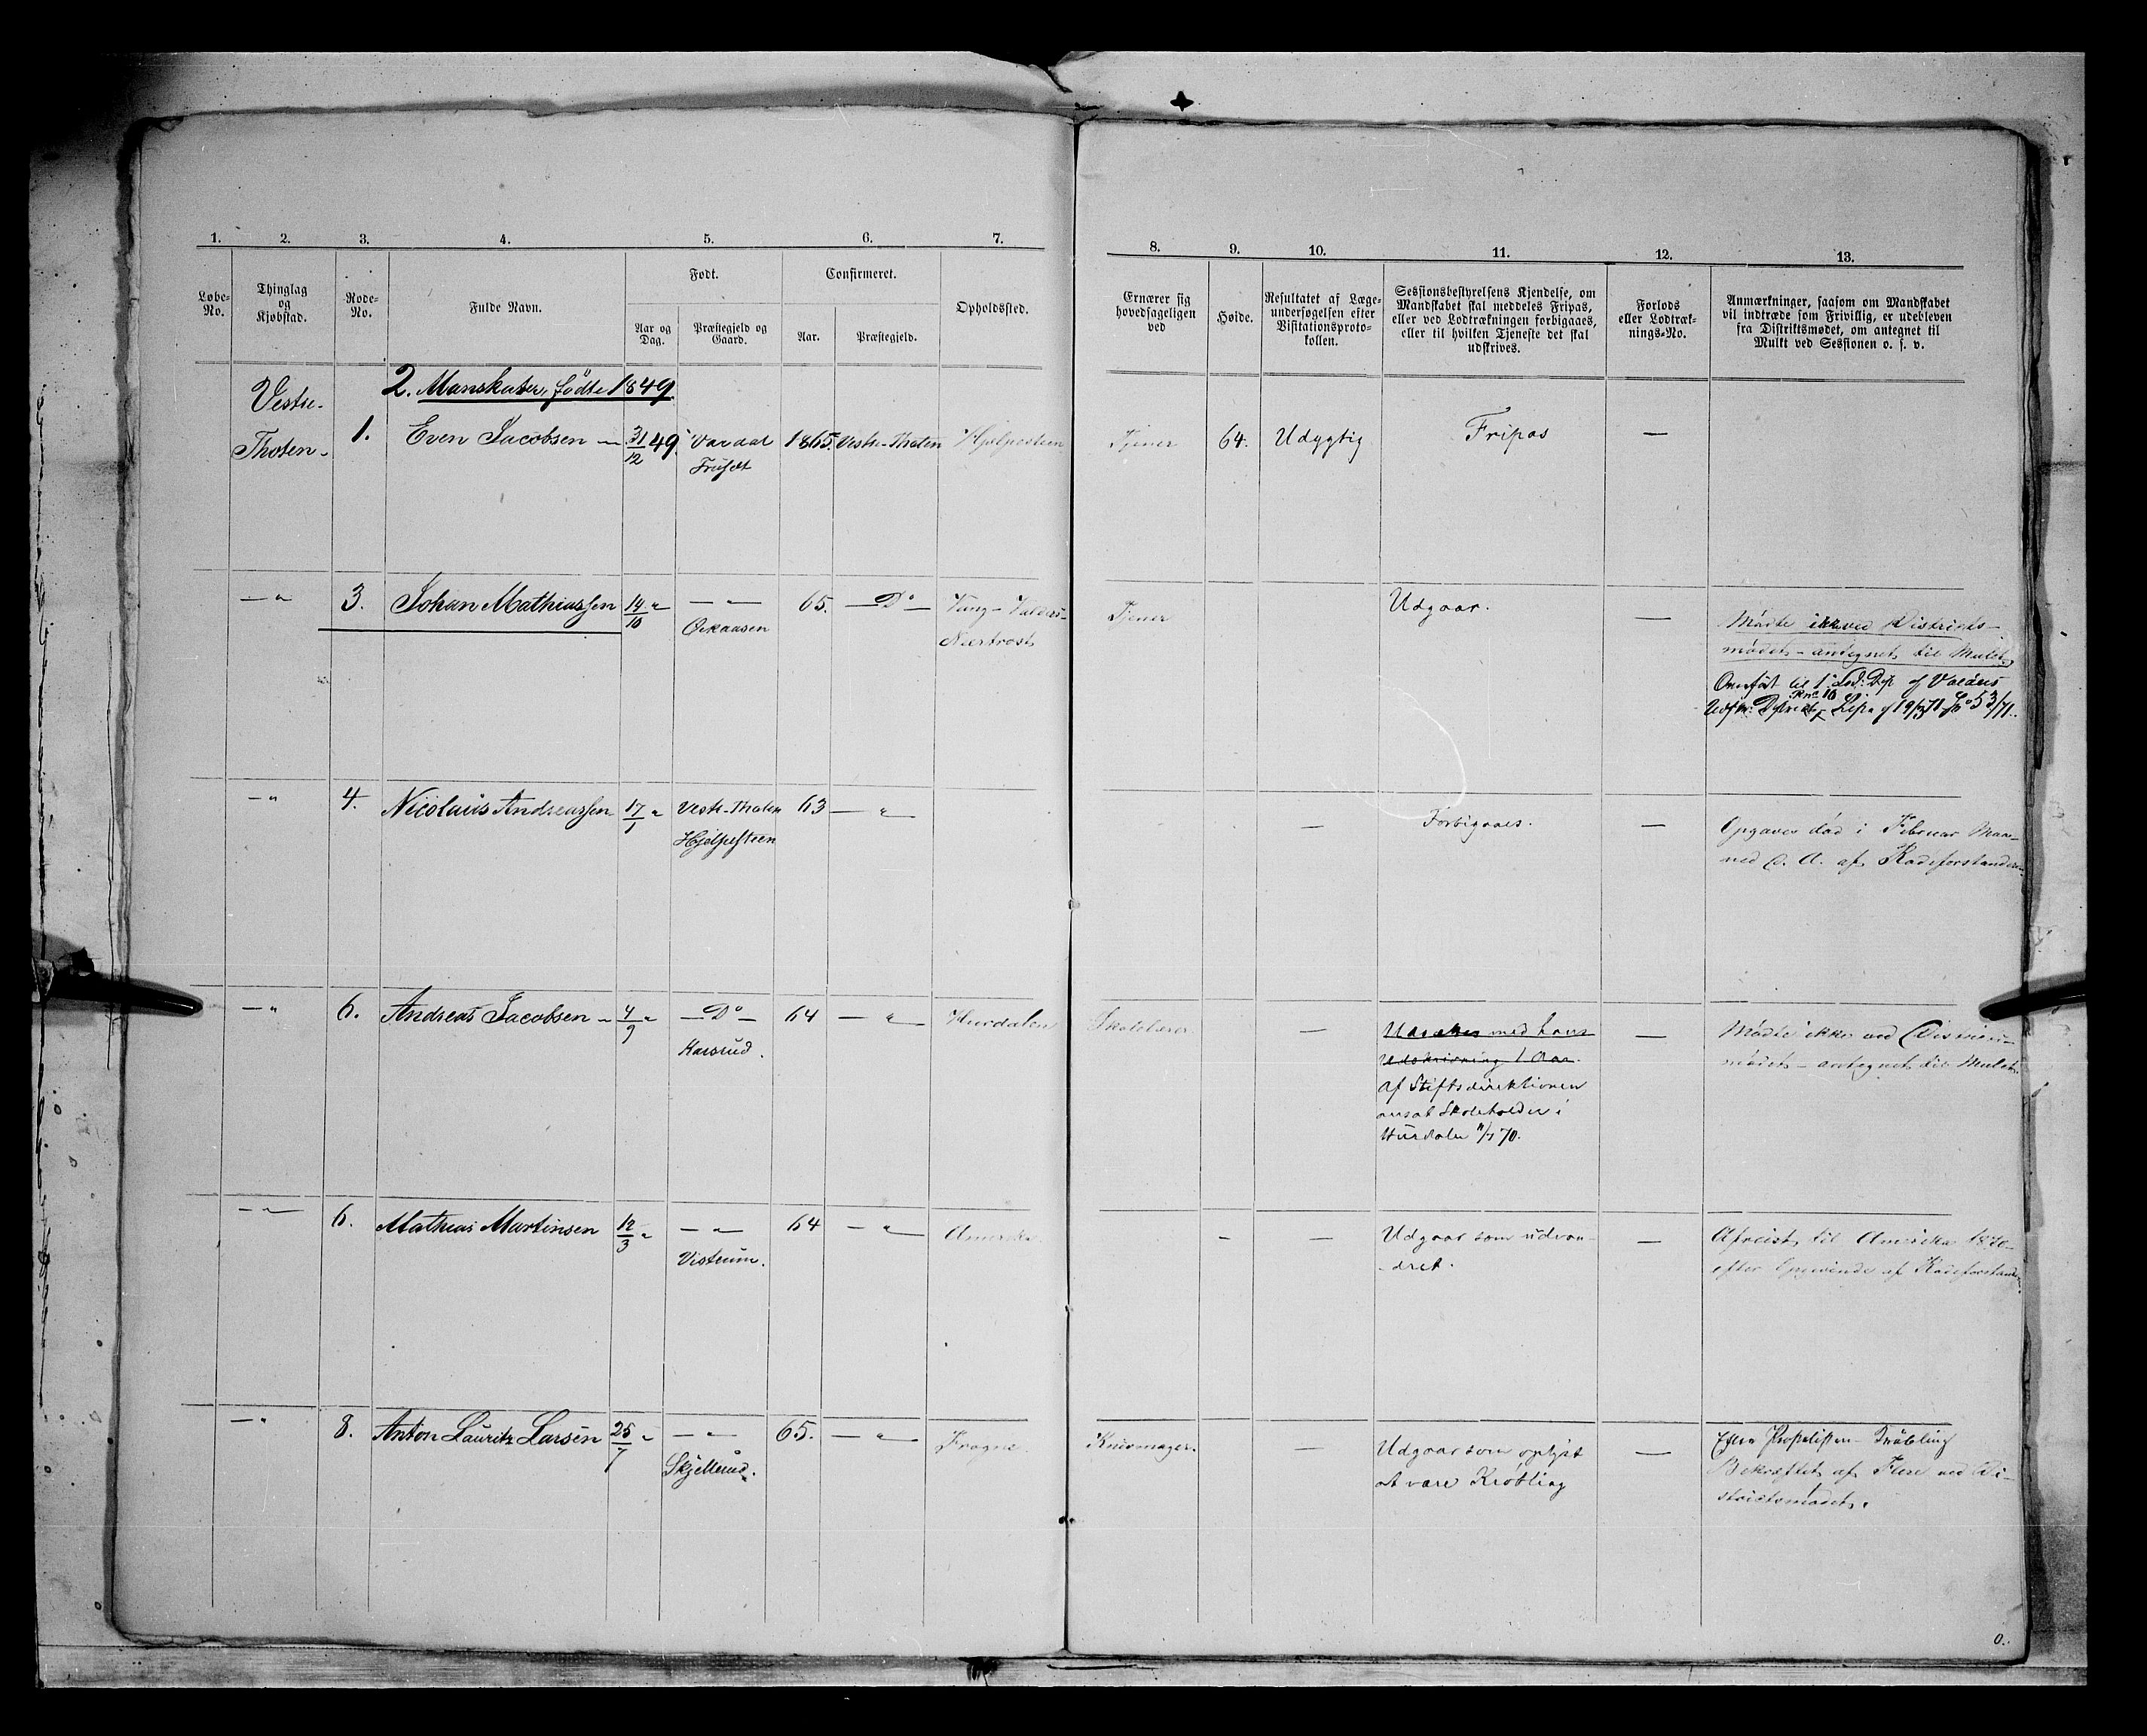 1. 2. 3. 4. 5. 6. 7.
Løbe-No. Thinglag og Kjøbstad. Rode-No. Fulde Navn. Født. Confirmeret. Opholdssted.
Aar og Dag. Præstegjeld og Gaard. Aar. Præstegjeld.
8. 9. 10. 11. 12. 13.
Ernærer sig hovedsageligen ved
Høide.
Resultatet af Læge-undersøgelsen efter Visitationsproto-kollen.
Sessionsbestyrelsens Kjendelse, om Mandskabet skal meddeles Fripas, eller ved Lodtrækningen forbigaaes, eller til hvilken Tjeneste det skal udskrives.
Forlods eller Lodtræk-nings-No.
Anmærkninger, saasom om Mandskabet vil indtræde som Frivillig, er udebleven fra Distriktsmødet, om antegnet til Mulkt ved Sessionen o. s. v.
2. Manskaber, fødte 1849.
Vestre-
Thoten- 1. Even Jacobsen — 31/12 49. Vardal 1865. Vestre-Thoten
Tjener 64. Udygtig Fripas —
—"— 3. Johan Mathiassen 14/10 " —"— 65. —Do—
Tjener Udgaar. —
Mødte ikke ved Districts-
mødet – antegnet til Mulct
—" 4. Nicolaus Andreassen 17/1 " Vestre-Thoten 63 —"—
— Forbigaaes. —
Opgaves død i Februar Maa-
ned d. A. af Rodeforstanderen
—" 6. Andreas Jacobsen – 4/9 " —Do— 64 —"— Hurdalen
Karsrud.
Skolelærer — Udsættes med hans
Udskrivning 1 Aar.
af Stiftsdirektionen
ansat Skoleholder i
Hurdalen 11/7 70.
—
Mødte ikke ved Districts-
mødet – antegnet til Mulct.
—"— 6. Mathias Martinsen 12/3 " —"— 64 —"— Amerika
– — Udgaar som udvan-
dret. —
Afreist til Amerika 1870
efter Opgivende af Rodeforstanderen.
—" 8. Anton Lauritz Larsen 25/7 " —"— 65. —"—
Skjellerud.
Knivmager. — Udgaar som oplyst
at være Krøbling —
Bekræftet af Flere ved Di-
strictsmødet.